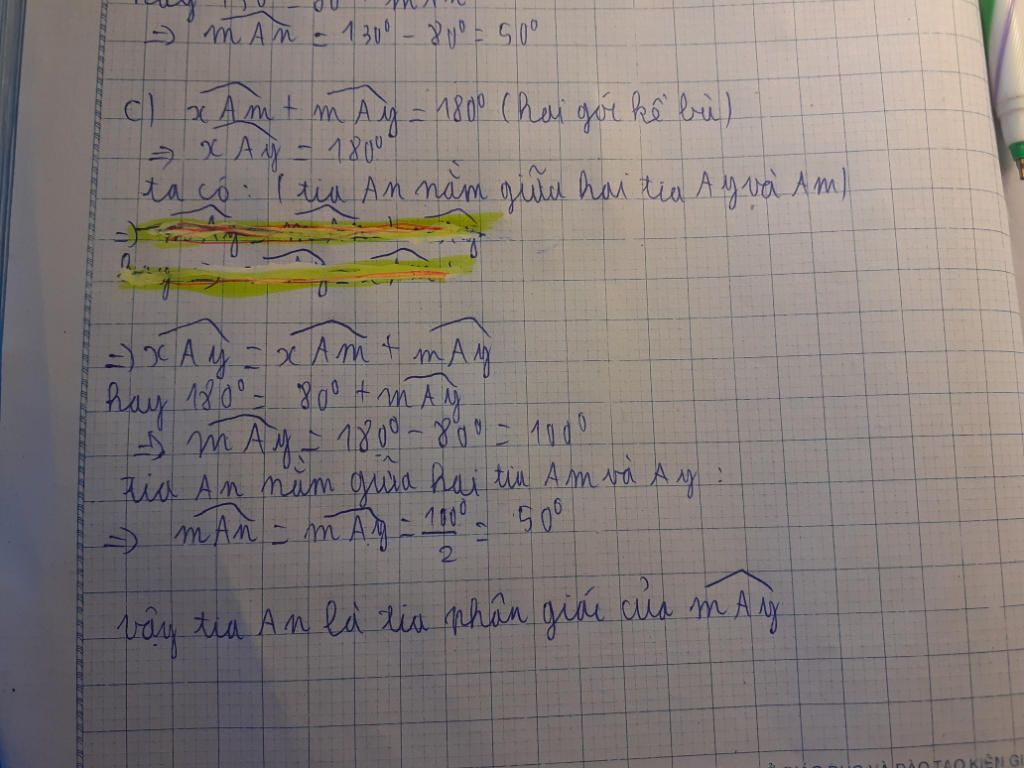 ⇒ mAn = 130⁰ - 80⁰ = 50⁰
c) xAm + mAy = 180⁰ (hai gói kề bù)
⇒ xAy = 180⁰
ta có: (tia An nằm giữa hai tia Ay và Am)
⇒) xAy = xAm + mAy
hay 180⁰ = 80⁰ + mAy
⇒ mAy = 180⁰ - 80⁰ = 100⁰
tia An nằm giữa hai tia Am và Ay :
⇒ mAn = mAy = 100⁰/2 = 50⁰
vậy tia An là tia phân giác của mAy